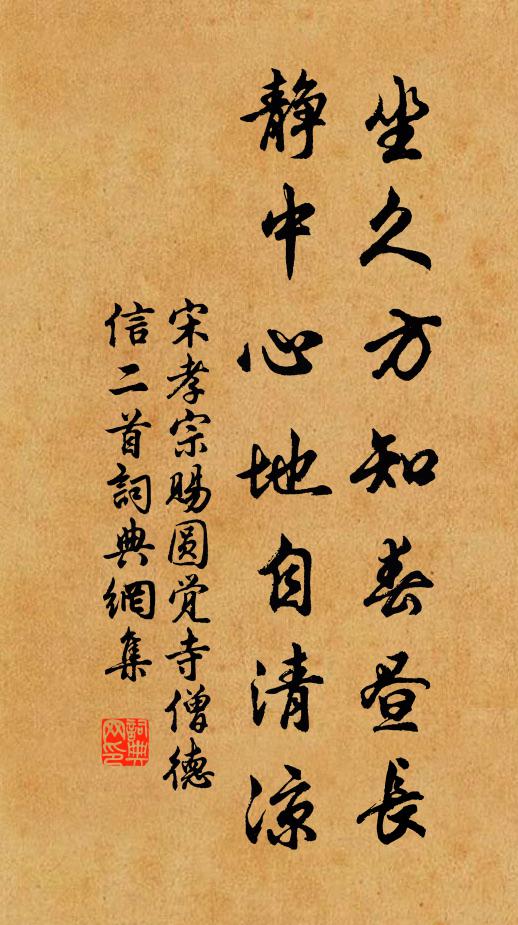 坐久方知春昼長
静中心地自清涼
宋孝宗賜圆觉寺僧德
信二首詞典網集
詞典
网印